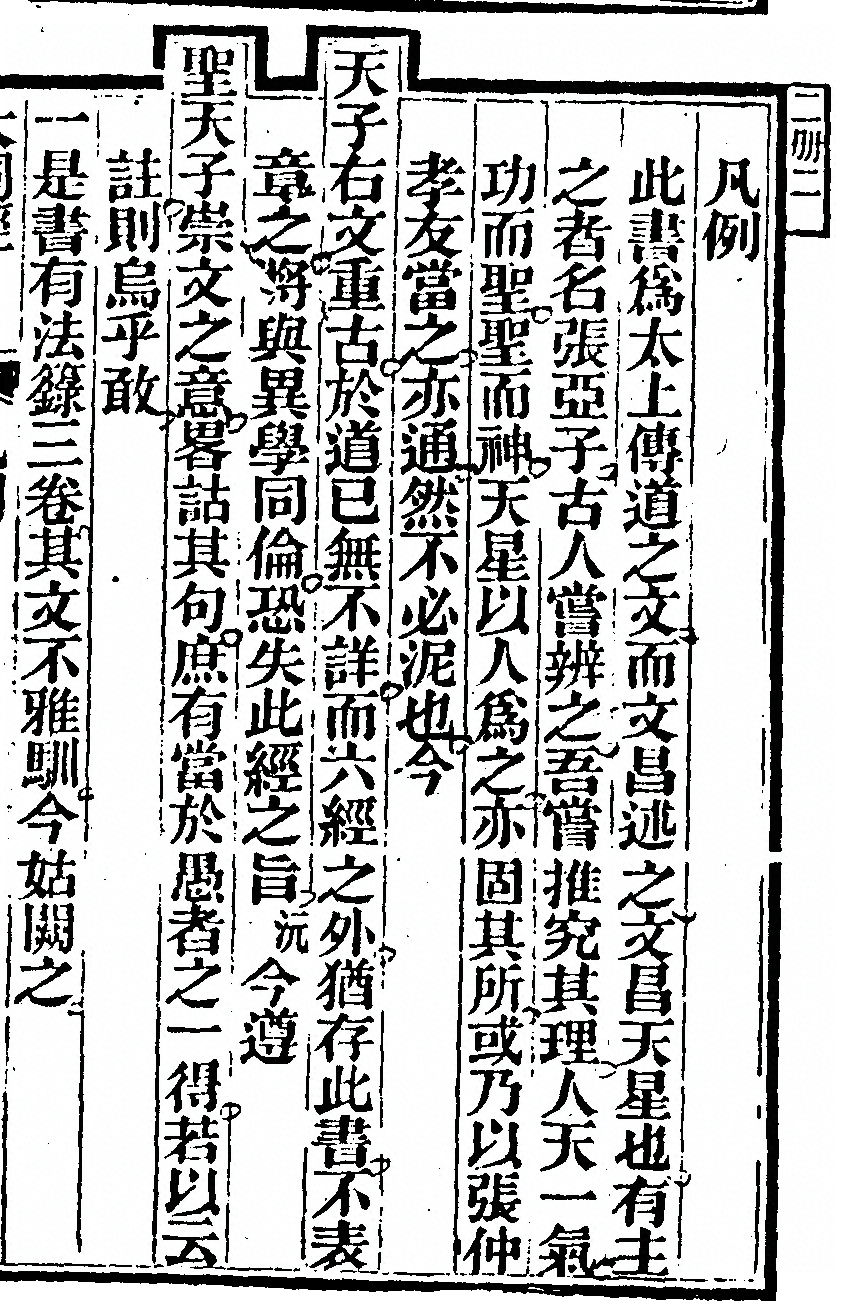 二册二
凡例
此書爲太上傳道之文而文昌述之文昌天星也有主
之者名張亞子古人嘗辨之吾嘗推究其理人天一氣
功而聖聖而神天星以人爲之亦固其所或乃以張仲
孝友當之亦通然不必泥也今
天子右文重古於道已無不詳而六經之外猶存此書不表
章之將與異學同倫恐失此經之旨沅今遵
聖天子崇文之意畧詁其句庶有當於愚者之一得若以云
註則烏乎敢
一是書有法籙三卷其文不雅馴今姑闕之